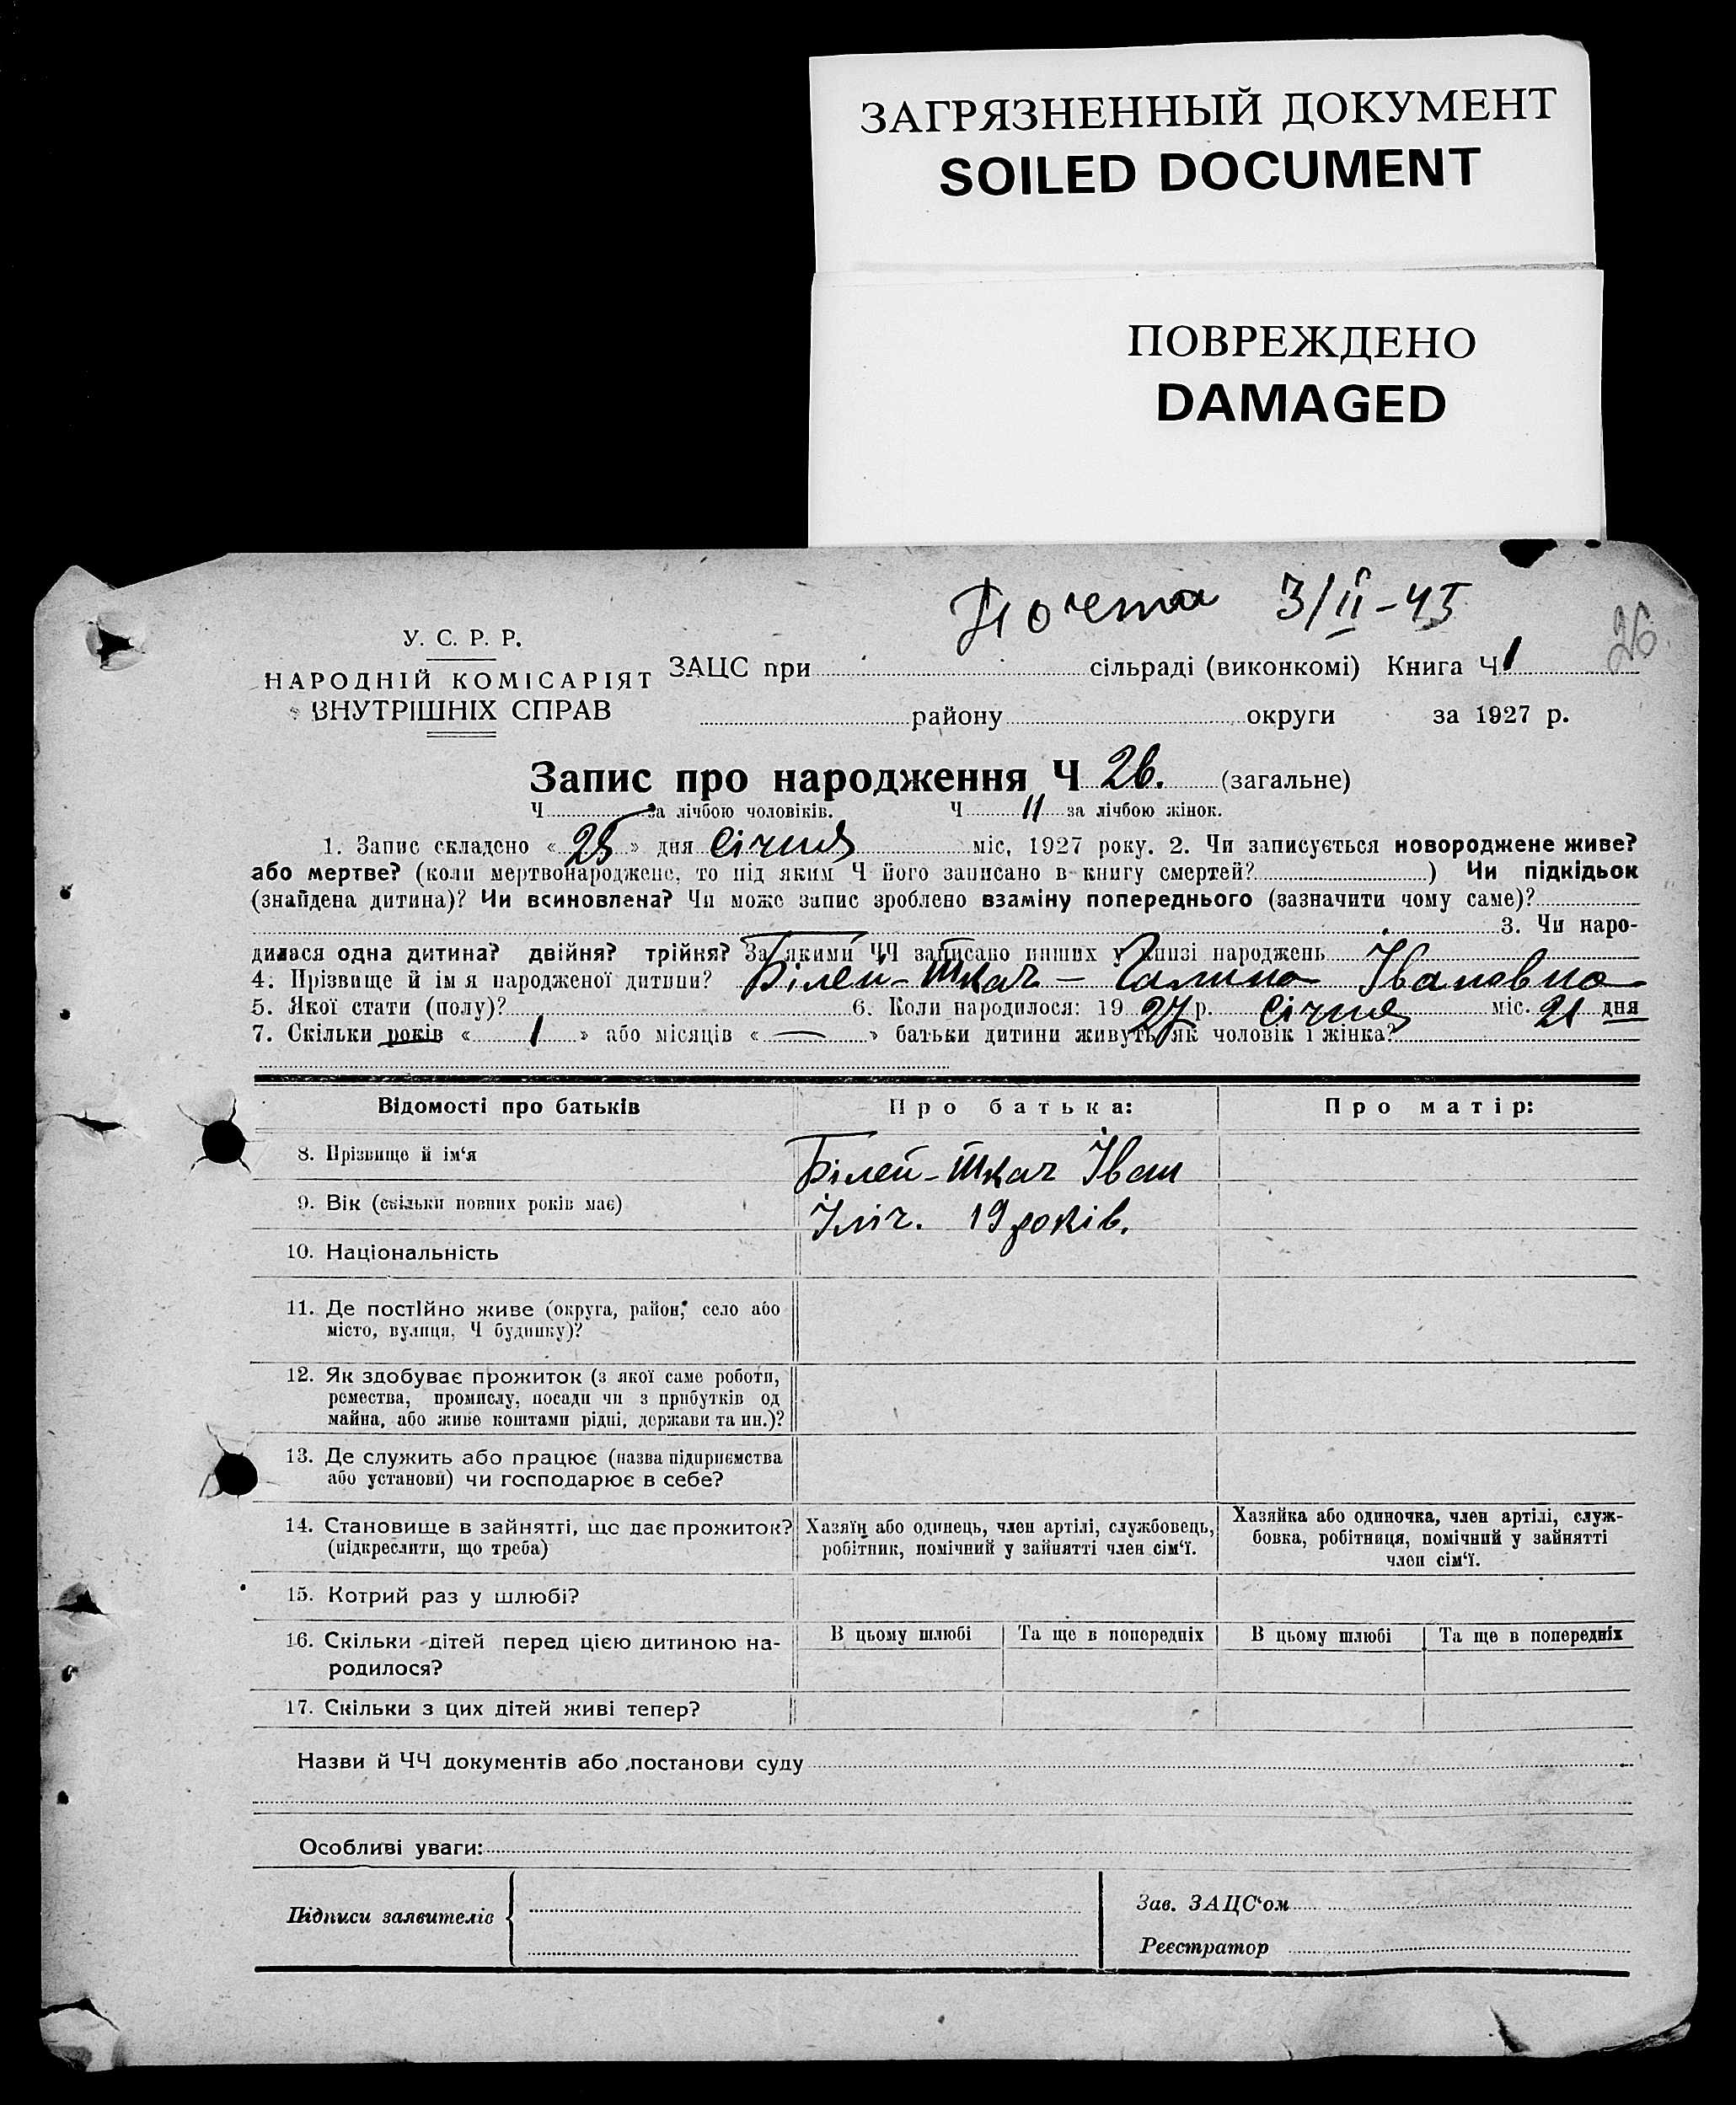 ЗАГРЯЗНЕННЫЙ ДОКУМЕНТ
SOILED DOCUMENT
ПОВРЕЖДЕНО
DAMAGED
Почта 3/II-45
26
У. С. Р. Р.
НАРОДНІЙ КОМІСАРІЯТ
ВНУТРІШНІХ СПРАВ
ЗАЦС при сільраді (виконкомі) Книга Ч 1
району округи за 1927 р.
Запис про народження Ч 26. (загальне)
Ч за лічбою чоловіків. Ч 11 за лічбою жінок.
1. Запис складено « 25 » дня Січня міс, 1927 року. 2. Чи записується новороджене живе?
або мертве? (коли мертвонароджене, то під яким Ч його записано в книгу смертей? ) Чи підкідьок
(знайдена дитина)? Чи всиновлена? Чи може запис зроблено взаміну попереднього (зазначити чому саме)?
3. Чи наро-
дилася одна дитина? двійня? трійня? За якими ЧЧ записано инших у книзі народжень
4. Прізвище й ім я народженої дитини? Білей-Ткач - Галина Івановна
5. Якої стати (полу)? 6. Коли народилося: 19 27 р. Січня міс. 21 дня
7. Скільки років « 1 » або місяців « — » батьки дитини живуть як чоловік і жінка?
Відомості про батьків Про батька: Про матір:
8. Прізвище й ім‘я Білей-Ткач Іван
9. Вік (скільки повних років має) Ілліч. 19 років.
10. Національність
11. Де постійно живе (округа, район, село або
місто, вулиця, Ч будинку)?
12. Як здобуває прожиток (з якої саме роботи,
ремества, промислу, посади чи з прибутків од
майна, або живе коштами рідні, держави та ин.)?
13. Де служить або працює (назва підприємства
або установи) чи господарює в себе?
14. Становище в зайнятті, що дає прожиток?
(підкреслити, що треба)
Хазяїн або одинець, член артілі, службовець,
робітник, помічний у зайнятті член сім‘ї.
Хазяйка або одиночка, член артілі, служ-
бовка, робітниця, помічний у зайнятті
член сім‘ї.
15. Котрий раз у шлюбі?
16. Скільки дітей перед цією дитиною на-
родилося?
В цьому шлюбі Та ще в попередніх В цьому шлюбі Та ще в попередніх
17. Скільки з цих дітей живі тепер?
Назви й ЧЧ документів або постанови суду
Особливі уваги:
Підписи заявителів
Зав. ЗАЦС‘ом
Реєстратор